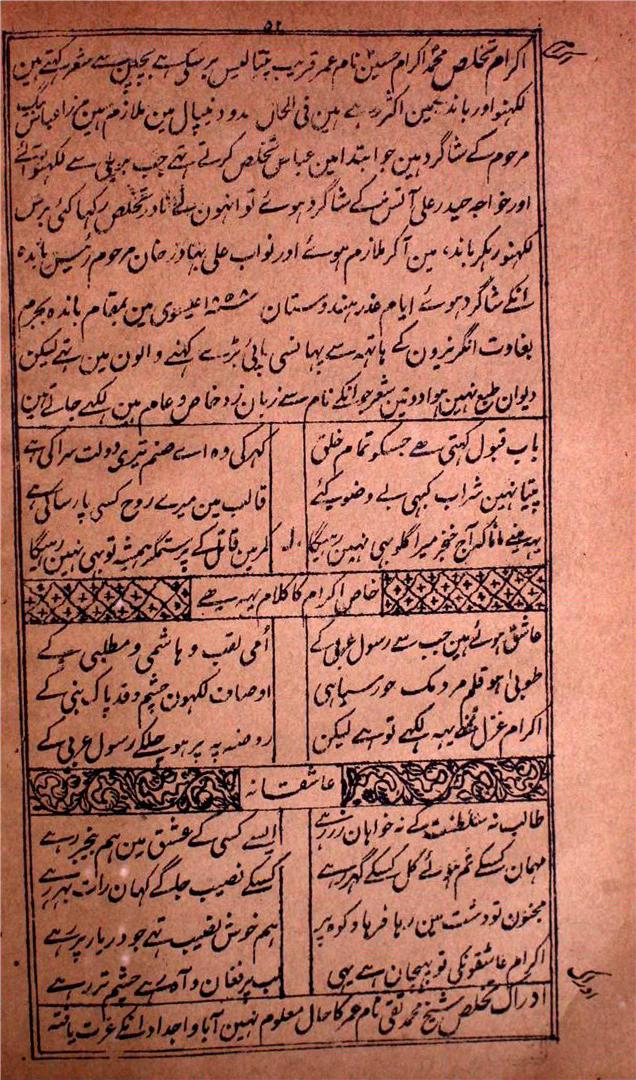 ۵۲
اکرام تخلص محمد اکرام حسین نام عمر قریب پنتالیس برسکی ہے بچپن سے شعر کہتے ہین
لکہنو اور باندہ مین اکثر رہے ہین فی الحال مین ملازم ہین مرزا عباس بیگ
مرحوم کے شاگرد ہین جو ابتدا مین عباس تخلص کرتے تہے جب بریلی سے لکہنو آئے
اور خواجہ حیدر علی آتش کے شاگرد ہوئے تو انہون نے نادر تخلص رکہا کئی برس
لکہنو رہکر باندہ مین آکر ملازم ہوئے اور نواب علی بہادر خان مرحوم رئیس باندہ
انکے شاگرد ہوئے ایام غدر ہندوستان ۱۸۵۸ عیسوی مین بمقام باندہ بجرم
بغاوت انگریزون کے ہاتہہ سے پہانسی پائی بڑے کہنے والون مین تہے لیکن
دیوان طبع نہین ہوا دو تین شعر جو انکے نام سے زبان زد خاص و عام ہین لکہے جاتے ہین
باب قبول کہتی ہے جسکو تمام خلق کہرکی وہ اے صنم تیری دولت سرا کی ہے
پیتا نہین شراب کبہی بے وضو کئے قالب مین میرے روح کسی پارسا کی ہے
یہہ مینے مانا کہ آج خنجر میرا گلو بہی نہین رہیگا کمر مین قاتل کے پر ستمگر ہمیشہ تو بہی نہین رہیگا
خاص اکرام کا کلام یہہ ہے
عاشق ہوئے ہین جب سے رسول عربی کے اُمی لقب و ہاشمی و مطلبی کے
طوبیٰ ہو قلم مردمک حور سیاہی اوصاف لکہون چشم و قد پاک نبی کے
اکرام غزل یہہ لکہے تو ہے لیکن روضہ پہ پر ہو چلکے رسول عربی کے
عاشقانہ
طالب نہ سلطنت کے نہ خواہان زر رہے ایسے کسی کے عشق مین ہم بیخبر رہے
مہمان کسکے تم ہوئے کل کسکے گہر رہے کسکے نصیب جاگے کہان رات بہر رہے
مجنون تو دشت مین رہا فرہاد کوہ پر ہم خوش نصیب تہے جو در یار پر رہے
اکرام عاشقونکی تو پہچان ہے یہی لب پر فغان و آہ رہے چشم تر رہے
ادراک تخلص شیخ محمد تقی نام عمر کا حال معلوم نہین آبا و اجداد انکے عزت یافتہ
ادراک